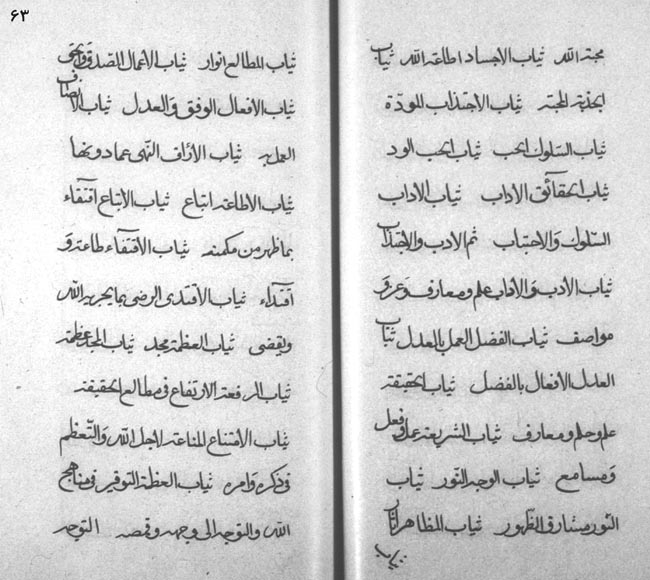 ۶۳
محبة الله ثياب الاجساد اطاعة الله ثياب
المحبة ثياب الاجتذاب المودّة
ثياب السّلوك الحب ثياب الحب الود
ثياب الحقائق الاداب ثياب الاداب
السّلوك والاجتناب ثم الادب والاجتذاب
ثياب الأدب والاداب علم ومعارف وعز و
مواصف ثياب الفضل العمل بالعدل ثياب
العدل الأفعال بالفضل ثياب الحقيقة
علم وحلم ومعارف ثياب الشريعة عمل وفعل
ومسامع ثياب الوجه النّور ثياب
النّور مشارق الظّهور ثياب المظاهر
ثياب
ثياب المطالع انوار ثياب الأعمال الصّدق
ثياب الأفعال الوفق والعدل ثياب الانصاف
العمل به ثياب النّهى عمادونها
ثياب الاطاعة اتباع ثياب الإتباع اقتفاء
بما ظهر من مكمنه ثياب الأقتفاء طاعة و
اقتداء ثياب الأقتدى الرضى بما يجريه الله
ويقضى ثياب العظمة مجد ثياب المجد عظمة
ثياب الرفعة الارتفاع فى مطالع الحقيقة
ثياب الأقتناع المناعة لاجل الله والتّعظم
فى ذكره وامره ثياب العظمة التوقير فى مناهج
الله والتوجه الى وجهه وقمصه التوجه